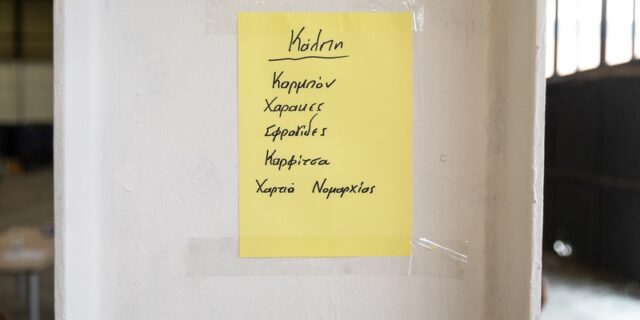 Κάλπη
Καρμπόν
Χάρακες
Σφραγίδες
Καρφίτσα
Χαρτιά Νομαρχίας